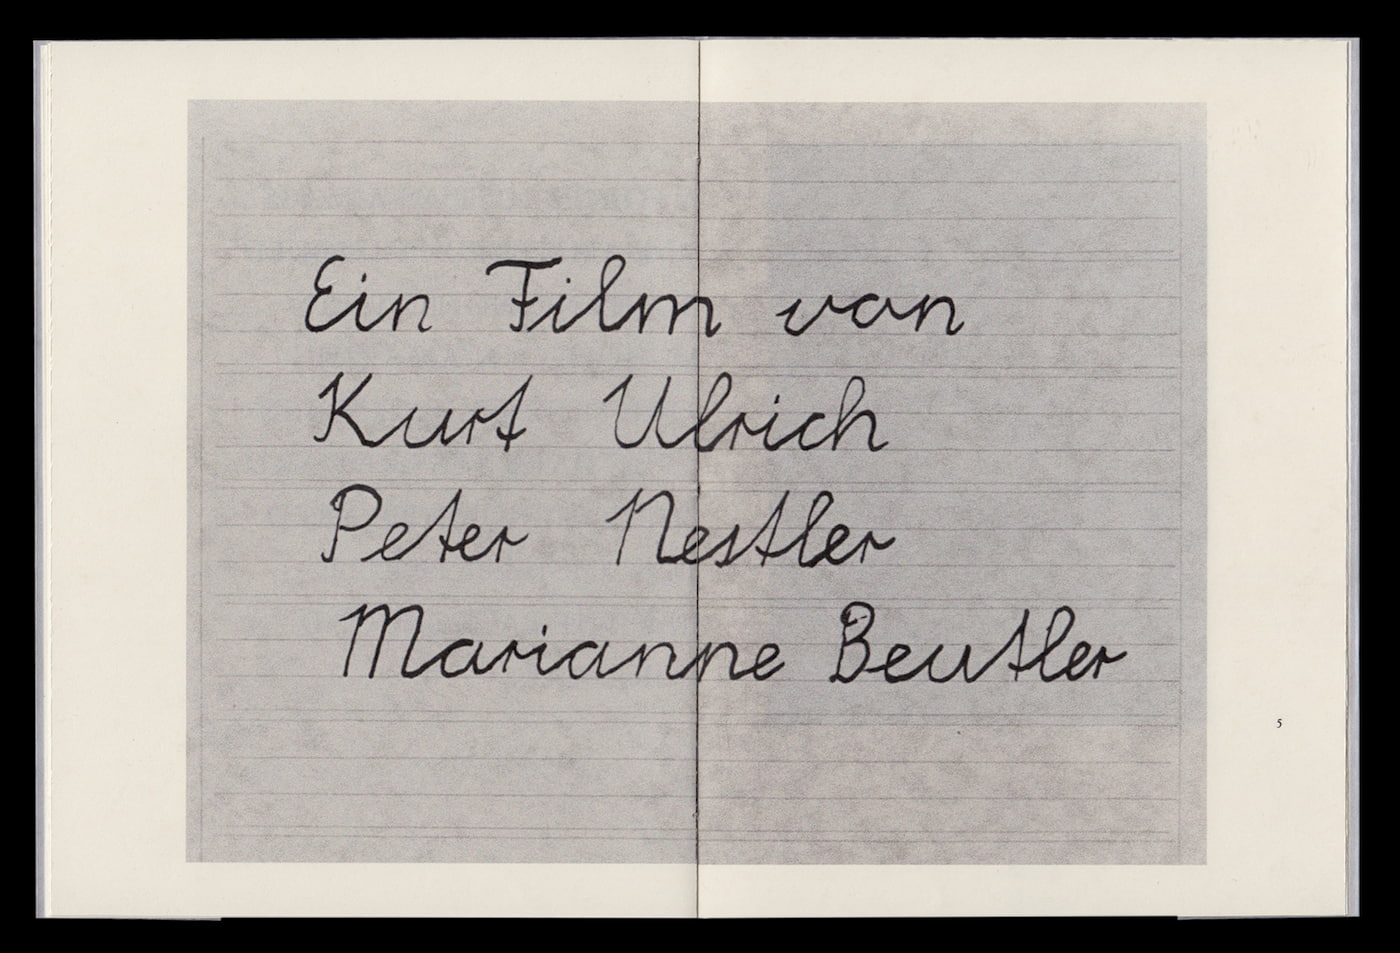 Ein Film von
Kurt Ulrich
Peter Nestler
Marianne Beutler
5